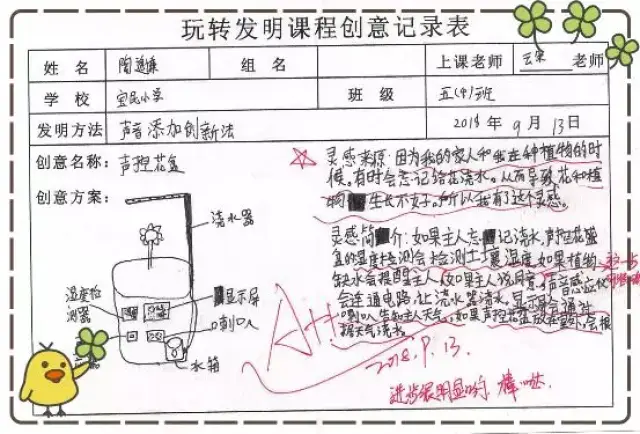 玩转发明课程创意记录表
姓名 陶 组名 上课老师 老师
学校 宝民小学 班级 五(4)班
发明方法 声音添加创新法 2018年9月13日
创意名称：声控花盆
创意方案：
浇水器
湿度检测器
显示屏
喇叭
水箱
灵感来源：因为我的家人和我在种植物的时
候，有时会忘记给花浇水。从而导致花和植
物生长不好。所以我有了这个灵感。
灵感简介：如果主人忘记浇水，声控花盆
里的湿度检测会检测土壤湿度，如果植物
缺水会提醒主人
会连通电路，让浇水器浇水，显示屏会通过
喇叭告知主人天气，如果声控花盆放在室外，会根
据天气浇水。
A+
2018.9.13
进步很明显哟，棒哒